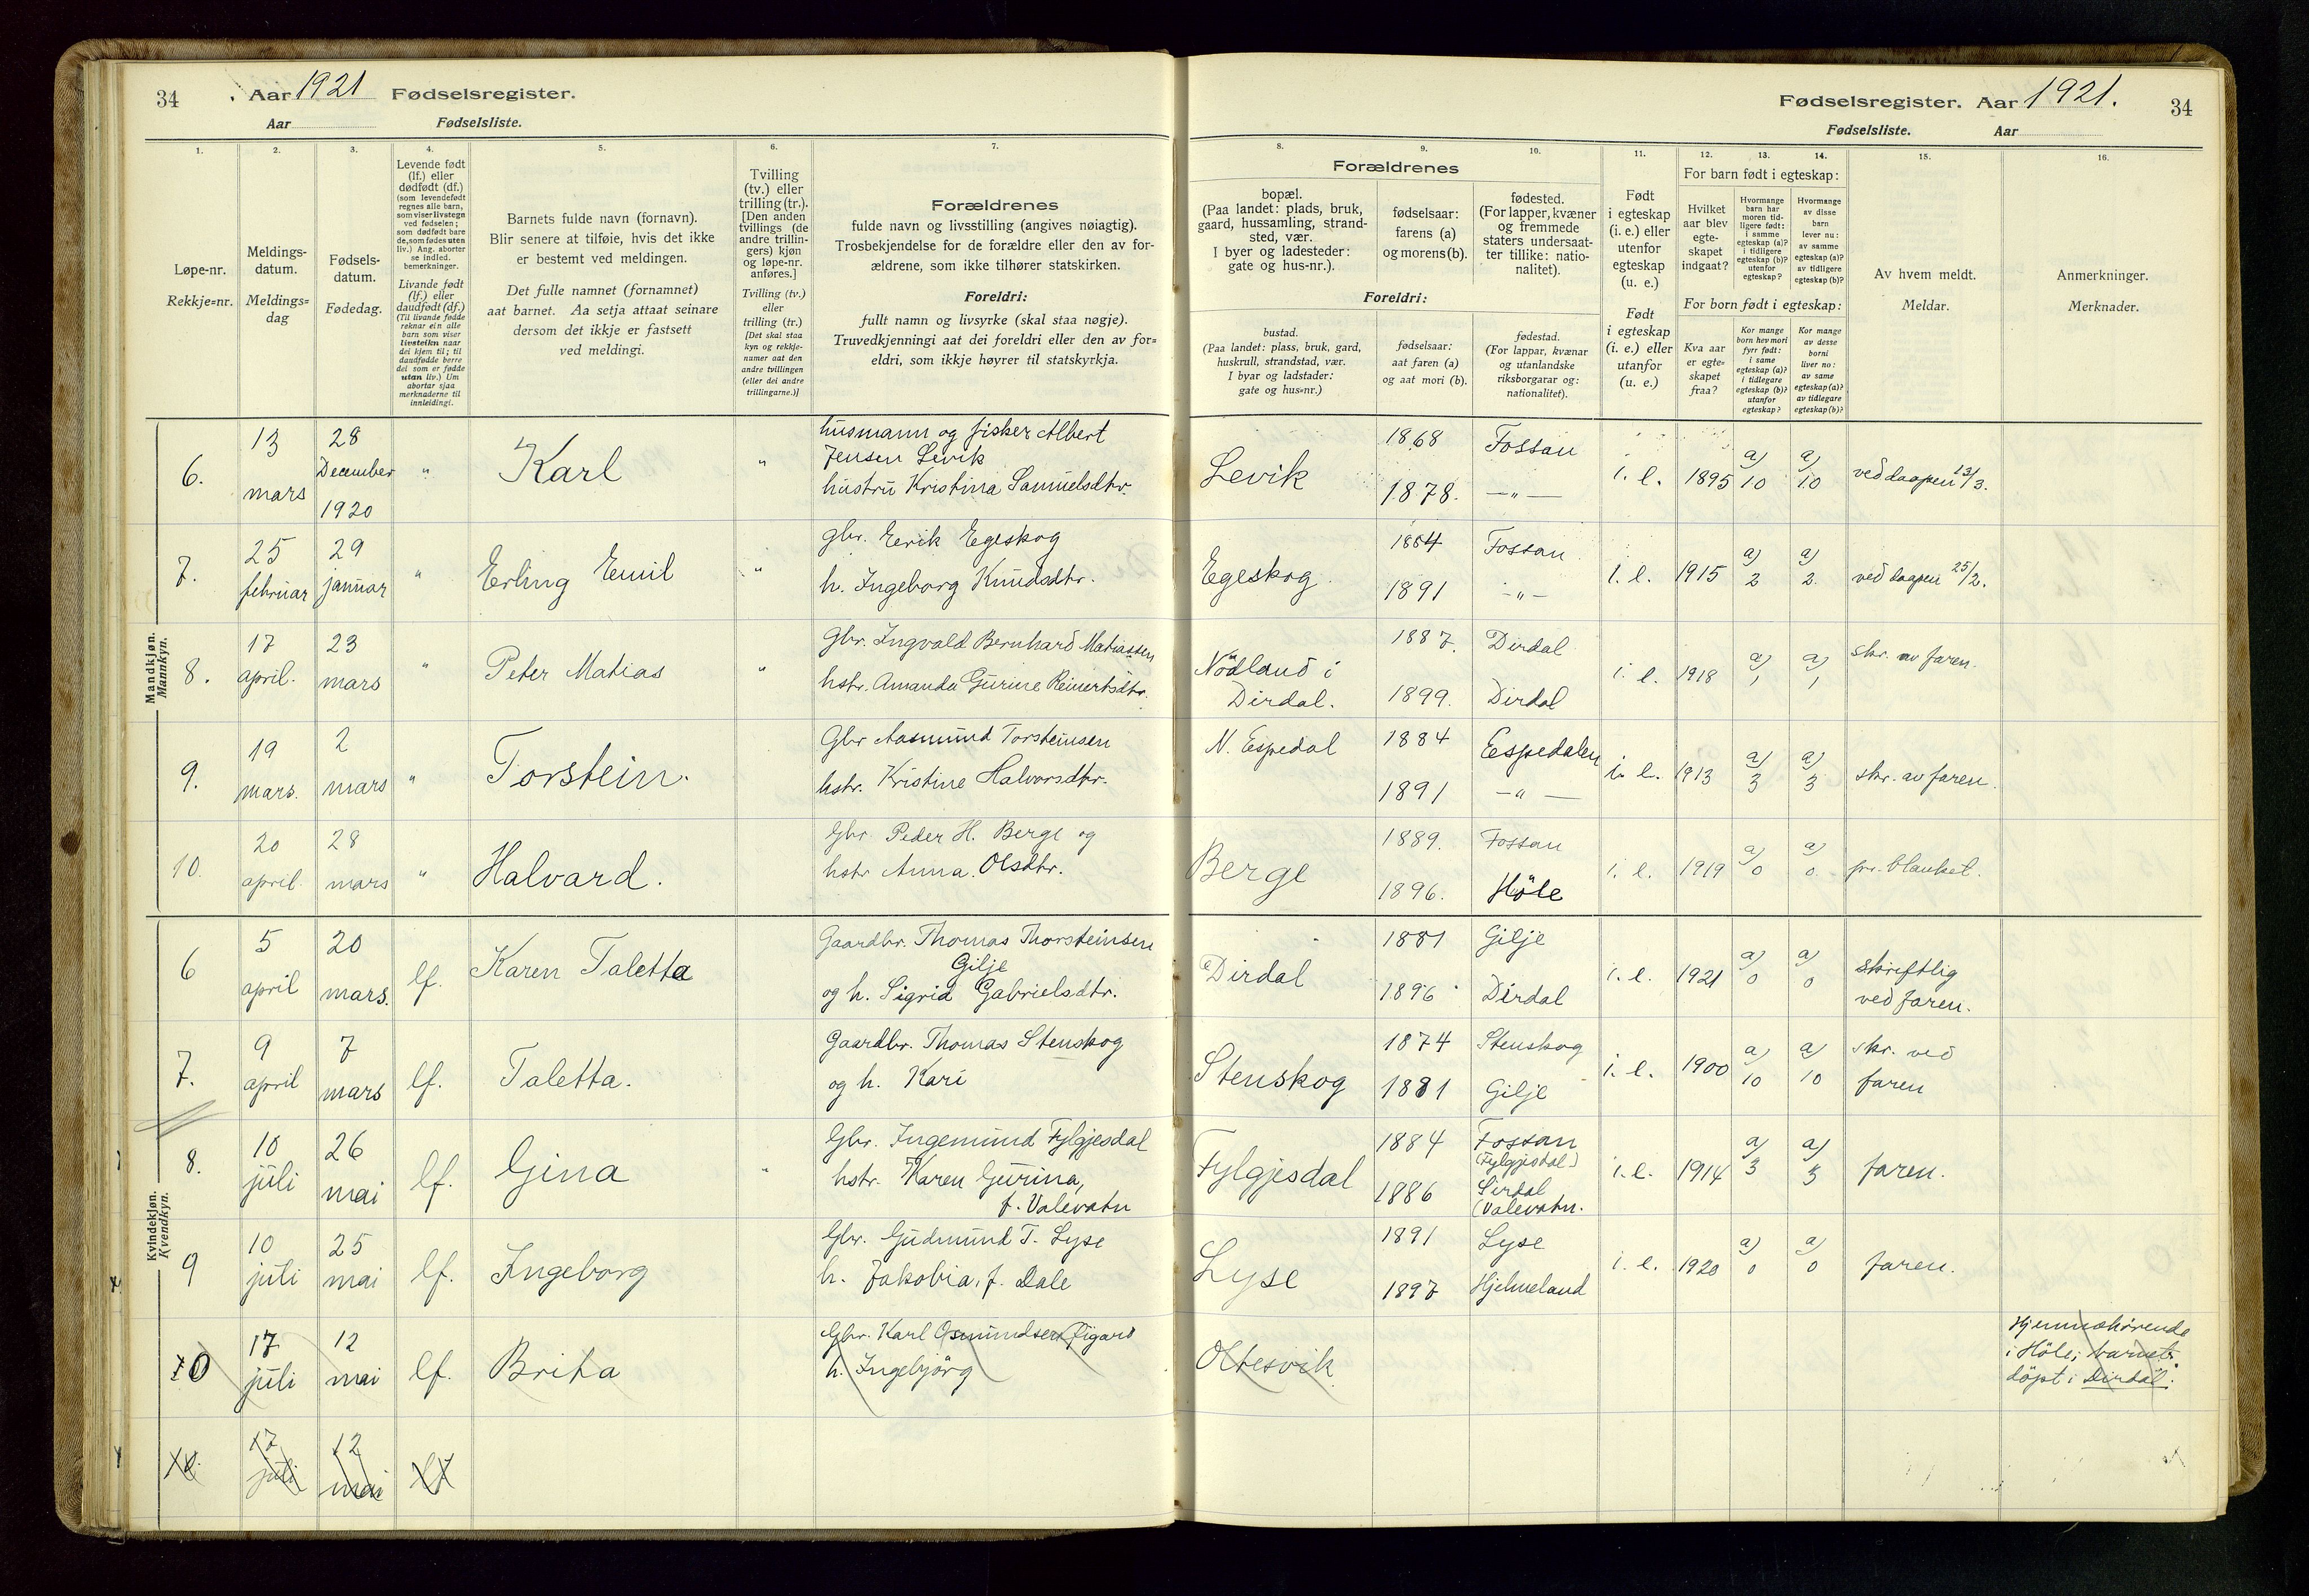 34 Aar 1921 Fødselsregister.
Aar Fødselsliste.
1.
2.
3.
4.
5.
6.
7.
Løpe-nr.
Rekkje=nr.
Meldings-
datum.
Meldings=
dag
Fødsels-
datum.
Fødedag.
Levende født
(lf.) eller
dødfødt (df.)
(som levendefødt
regnes alle barn,
som viser livstegn
ved fødselen;
som dødfødt bare
de, som fødes uten
liv.) Ang. aborter
se indled.
bemerkninger.
Livande født
(lf.) eller
daudfødt (df.)
(Til livande fødde
reknar ein alle
barn som viser
livsteikn naar
dei kjem til; til
daudfødde berre
dei som er fødde
utan liv.) Um
abortar sjaa
merknaderne til
innleidingi.
Barnets fulde navn (fornavn).
Blir senere at tilføie, hvis det ikke
er bestemt ved meldingen.
Det fulle namnet (fornamnet)
aat barnet. Aa setja attaat seinare
dersom det ikkje er fastsett
ved meldingi.
Tvilling
(tv.) eller
trilling (tr.).
[Den anden
tvillings (de
andre trillin-
gers) kjøn
og løpe-nr.
anføres.]
Tvilling (tv.)
eller
trilling (tr.)
[Det skal staa
kyn og rekkje-
numer aat den
andre tvillingen
(eller dei andre
trillingarne.)]
Forældrenes
fulde navn og livsstilling (angives nøiagtig).
Trosbekjendelse for de forældre eller den av for-
ældrene, som ikke tilhører statskirken.
Foreldri:
fullt namn og livsyrke (skal staa nøgje).
Truvedkjenningi aat dei foreldri eller den av for=
eldri, som ikkje høyrer til statskyrkja.
Mandkjøn.
Mannkyn.
6.
13
mars
28
December
1920
"
Karl
"
husmann og fisker Albert
Jensen Levik
hustru Kristina Samuelsdtr.
7.
25
februar
29
januar
"
Erling Emil
"
gbr. Eerik Egeskog
h. Ingeborg Knudsdtr.
8.
17
april.
23
mars
"
Peter Matias
"
Gbr. Ingvald Bernhard Matiassen
hstr. Amanda Gurine Reinertsdtr.
9.
19
mars.
2
mars
"
Torstein.
Gbr Aasmund Torsteinsen
hstr. Kristine Halvorsdtr.
10.
20
april.
28
mars
"
Halvard.
Gbr. Peder H. Berge og
hstr Anna Olsdtr.
Kvindekjøn.
Kvendkyn.
6
5
april
20
mars.
lf.
Karen Taletta
Gaardbr. Thomas Thorsteinsen
Gilje
og h. Sigrid Gabrielsdtr.
7.
9
april
7
mars
lf.
Taletta.
Gaardbr. Thomas Stenskog
og h. Kari
8.
10
juli
26
mai
lf.
Gina
"
Gbr. Ingemund Fylgjesdal
hstr. Karen Gurina,
f. Valevatn
9
10
juli
25
mai
lf.
Ingeborg
Gbr. Gudmund T. Lyse
h. Jakobia, f. Dale
10
17
juli
12
mai
lf.
Brita
Gbr. Karl Osmundsen
h. Ingebjörg
17
juli
12
mai
lf
Fødselsregister. Aar 1921. 34
Fødselsliste. Aar
8.
9.
10.
11.
12.
13.
14.
15.
16.
Forældrenes
bopæl.
(Paa landet: plads, bruk,
gaard, hussamling, strand-
sted, vær.
I byer og ladesteder:
gate og hus-nr.).
fødselsaar:
farens (a)
og morens (b).
fødested.
(For lapper, kvæner
og fremmede
staters undersaat-
ter tillike: natio-
nalitet).
Foreldri:
bustad.
(Paa landet: plass, bruk, gard,
huskrull, strandstad, vær.
I byar og ladstader:
gate og hus=nr.)
fødselsaar:
aat faren (a)
og aat mori (b).
fødestad.
(For lappar, kvænar
og utanlandske
riksborgarar og:
nationalitet).
Født
i egteskap
(i. e.) eller
utenfor
egteskap
(u. e.)
Født
i egteskap
(i. e.) eller
utanfor
(u. e.)
For barn født i egteskap:
Hvilket
aar blev
egte-
skapet
indgaat?
Hvormange
barn har
moren tid-
ligere født:
i samme
egteskap (a)?
i tidligere
egteskap (b)?
utenfor
egteskap?
Hvormange
av disse
barn
lever nu:
av samme
egteskap (a)?
av tidligere
egteskap (b)?
For born født i egteskap:
Kva aar
er egte=
skapet
fraa?
Kor mange
born hev mori
fyrr født:
i same
egteskap (a)?
i tidlegare
egteskap (b)?
utanfor
egteskap?
Kor mange
av desse
borni
liver no:
av same
egteskap (a)?
av tidlegare
egteskap (b)?
Av hvem meldt.
Meldar.
Anmerkninger.
Merknader.
Levik
1868
1878.
Fossan
—"—
i. e.
1895
a)
10
a)
10
ved daapen 13/3.
Egeskog.
1884
1891
Fossan
—"—
i. e.
1915
a)
2
a)
2
ved daapen 25/2.
Nödland i
Dirdal.
1887.
1899.
Dirdal
Dirdal
i. e.
1918
a)
1
a)
1
skr. av faren.
N. Espedal
1884
1891
Eespedalen
—"—
i. e.
1913
a)
3
a)
3
skr. av faren.
Berge
1889.
1896.
Fossan
Höle
i. e.
1919
a)
0
a)
0
pr. blanket.
Dirdal
1881
1896
Gilje
Dirdal
i. e.
1921
a)
0
a)
0
skriftlig
ved faren.
Stenskog
1874
1881
Stenskog
Gilje
i. e.
1900
a)
10
a)
10
skr. ved
faren
Fylgjesdal
1884
1886
Fossan
(Fylgjesdal)
Sirdal
(Valevatn.
i. e.
1914
a)
3
a)
3
faren.
Lyse
1891
1897
Lyse
Hjelmeland
i. e.
1920
a)
0
a)
0
faren.
Oltesvik
Hjemmehørende
i Höle; barnet
döpt i Dirdal.